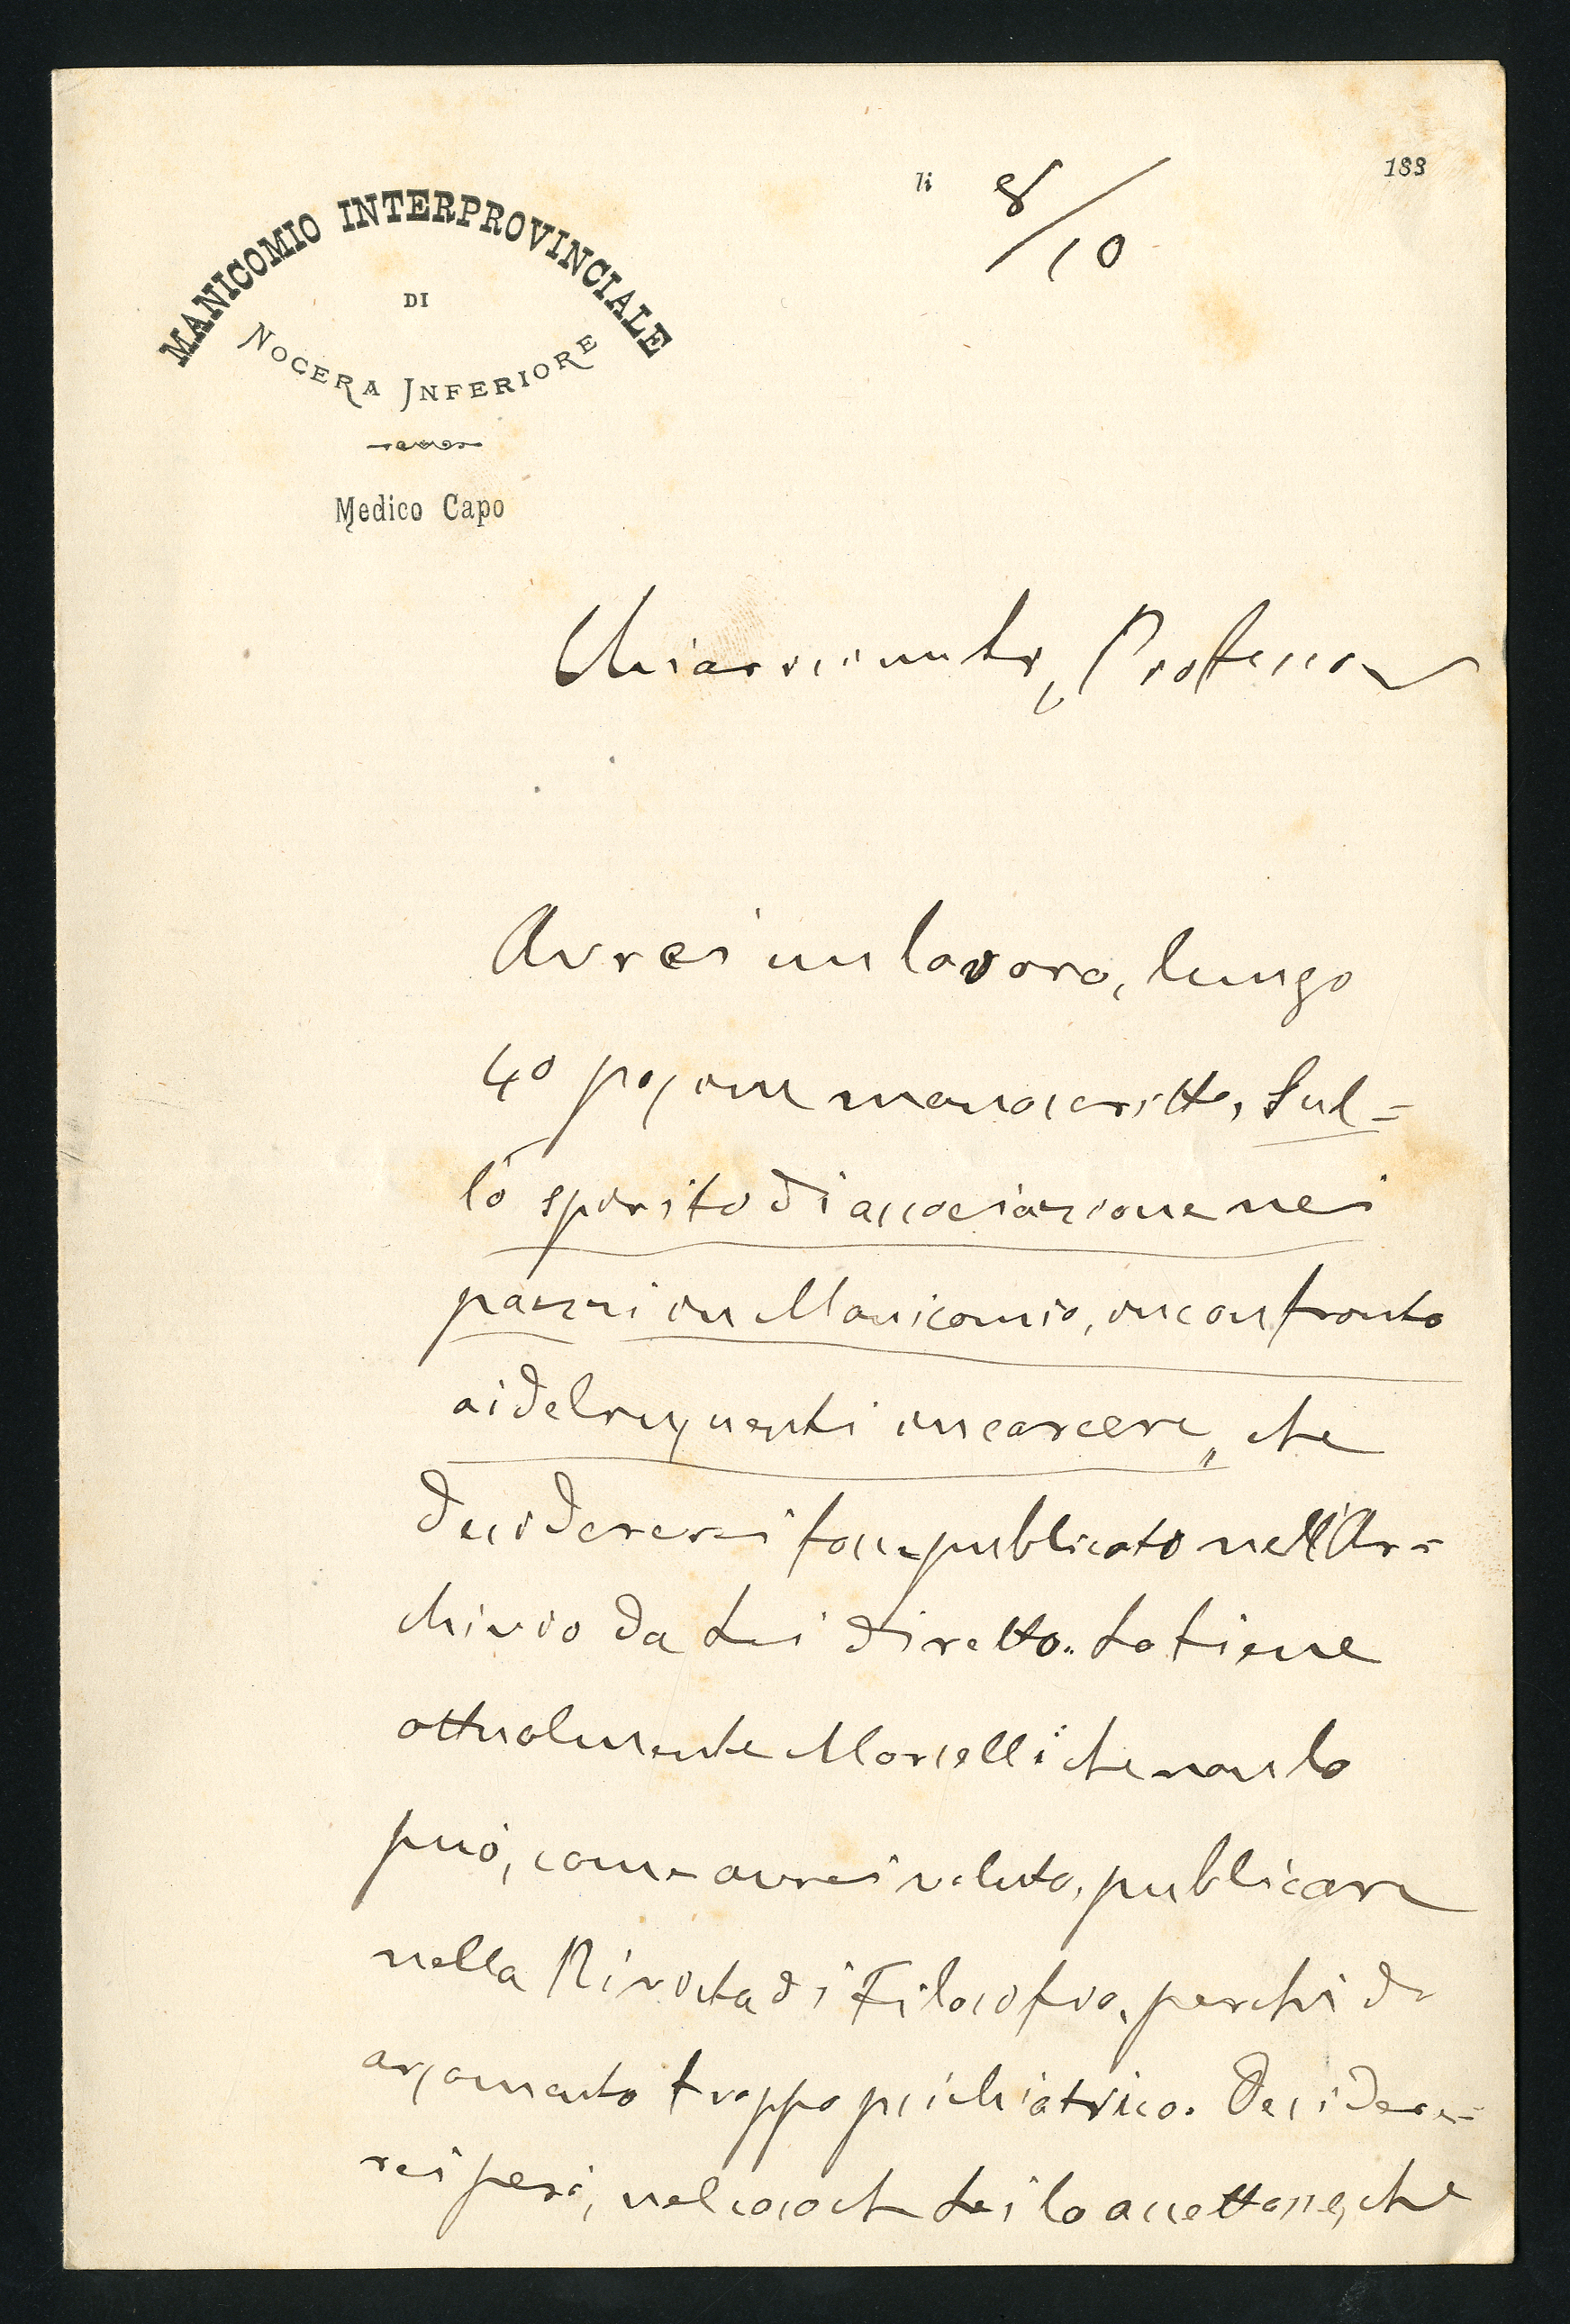 MANICOMIO INTERPROVINCIALE
DI
NOCERA INFERIORE
Medico Capo
li 8/10
188
Chiarissimo Professore
Avrei un lavoro, lungo
40 pagine manoscritte, Sul=
lo spirito di associazione nei
pazzi in Manicomio, in confronto
ai delinquenti in carcere, che
desidererei fosse publicato nell'Ar=
chivio da Lei diretto. Lo tiene
attualmente Morselli che non lo
può, come avrei voluto, publicare
nella Rivista di Filosofia, perchè di
argomento troppo psichiatrico. Desidere=
rei però, nel caso che Lei lo accettasse, che